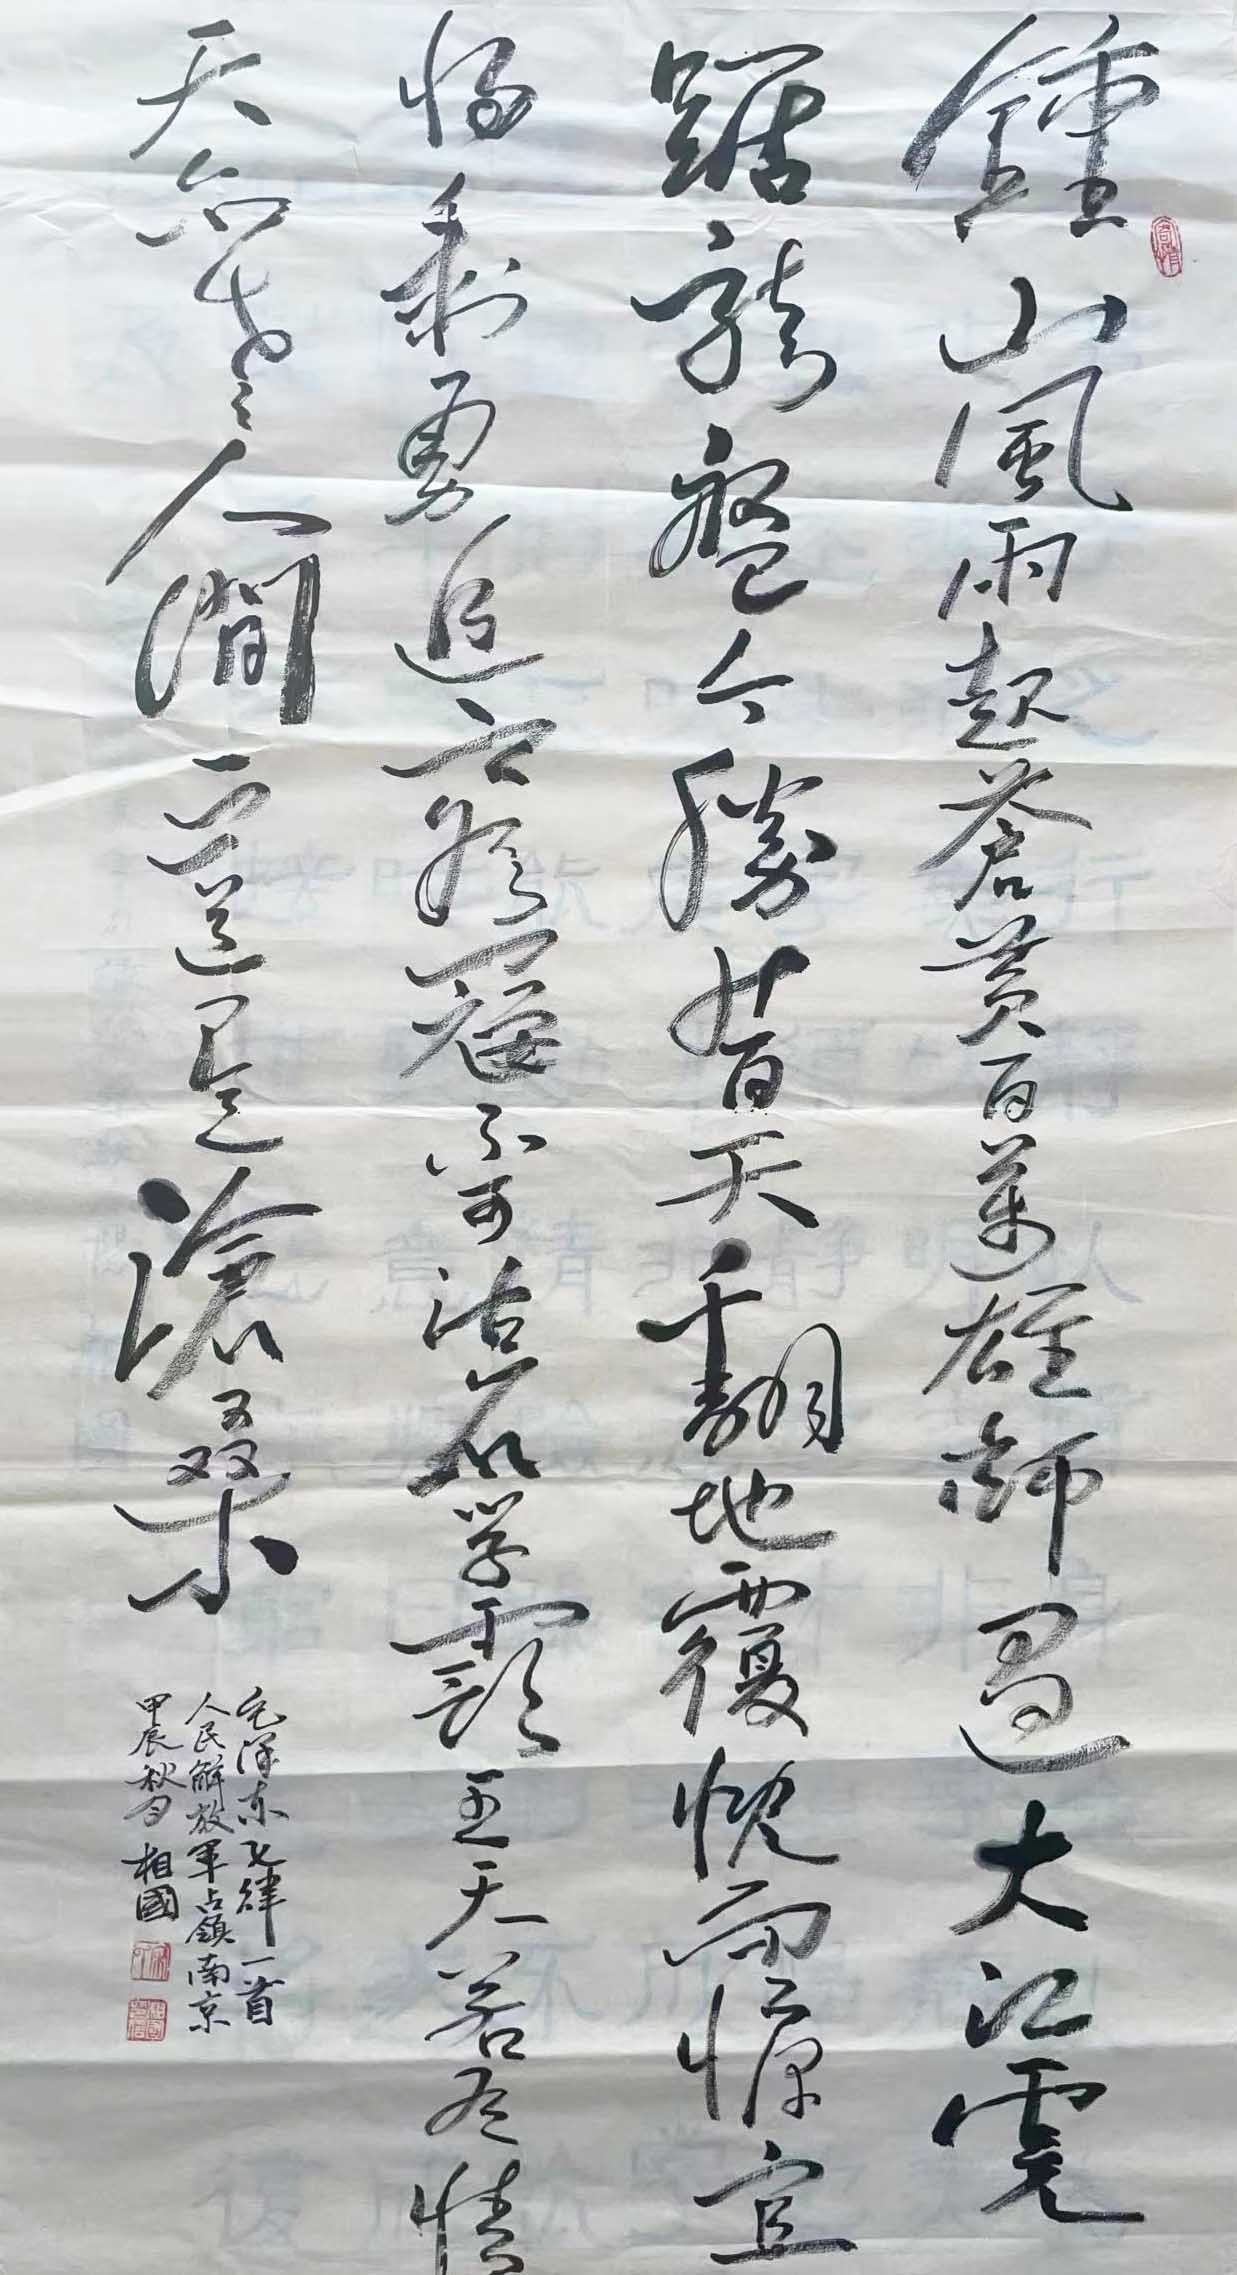 鍾山風雨起蒼黃百萬雄師過大江虎
踞龍盤今勝昔天翻地覆慨而慷宜
將剩勇追窮寇不可沽名學霸王天若有情
天亦老人間正道是滄桑
毛澤東七律一首
人民解放軍占領南京
甲辰秋月相國